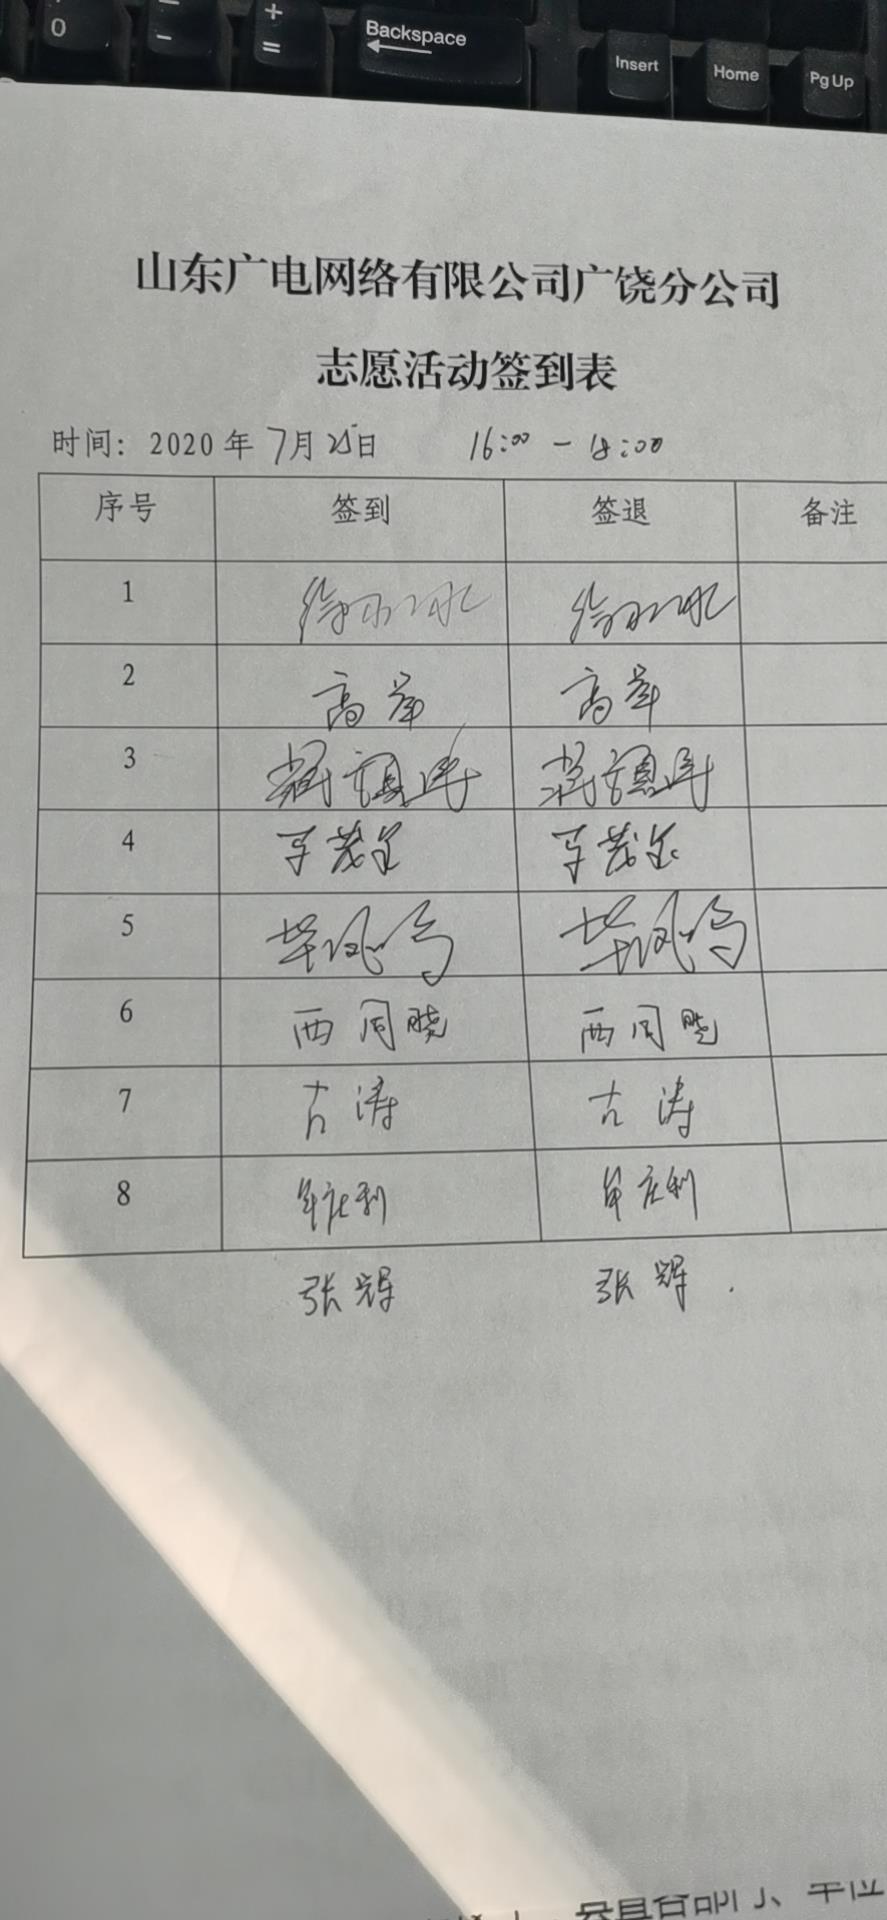 0
-
+
=
Backspace
Insert
Home
Pg Up
山东广电网络有限公司广饶分公司
志愿活动签到表
时间: 2020 年 7月 25日 16:00 - 18:00
序号 签到 签退 备注
1
2 高岸 高岸
3
4
5
6 西同晓 西同晓
7 古涛 古涛
8
张辉 张辉